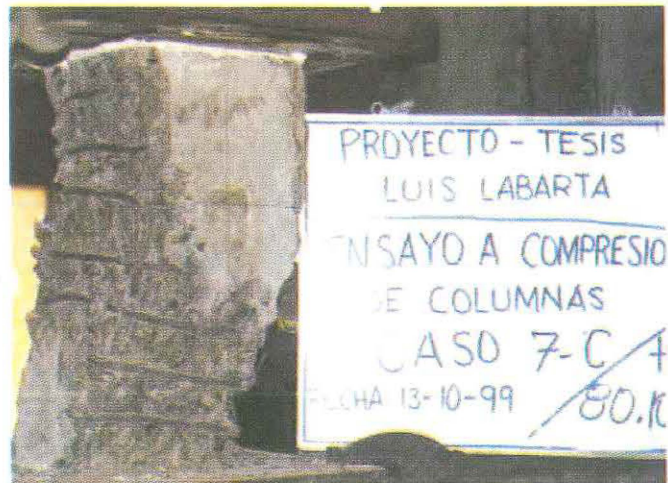 PROYECTO - TESIS
LUIS LABARTA
ENSAYO A COMPRESIO
DE COLUMNAS
CASO 7-C
FECHA 13-10-99